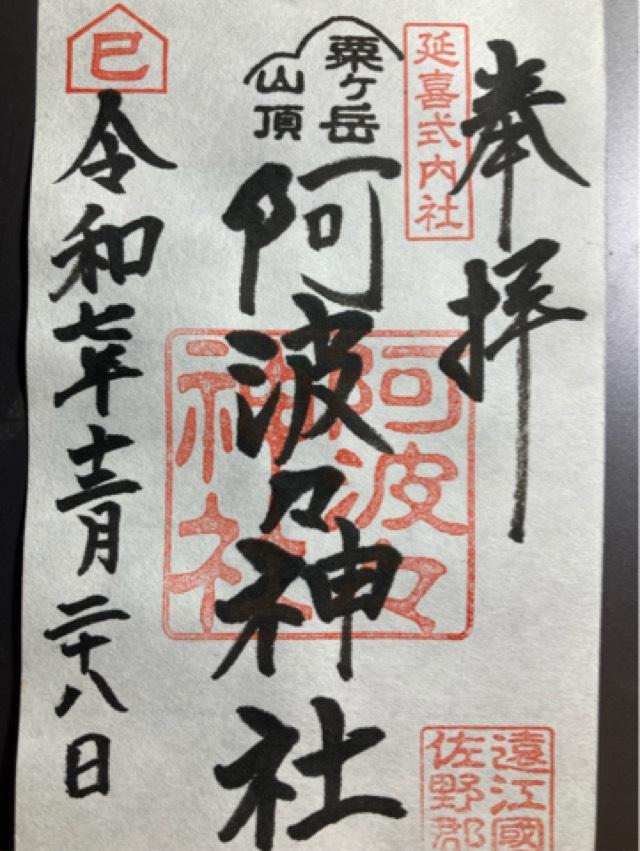 奉拝
延喜式内社
粟ヶ岳
山頂
阿波々神社
阿波々
神社
遠江國
佐野郡
巳
令和七年十二月二十八日